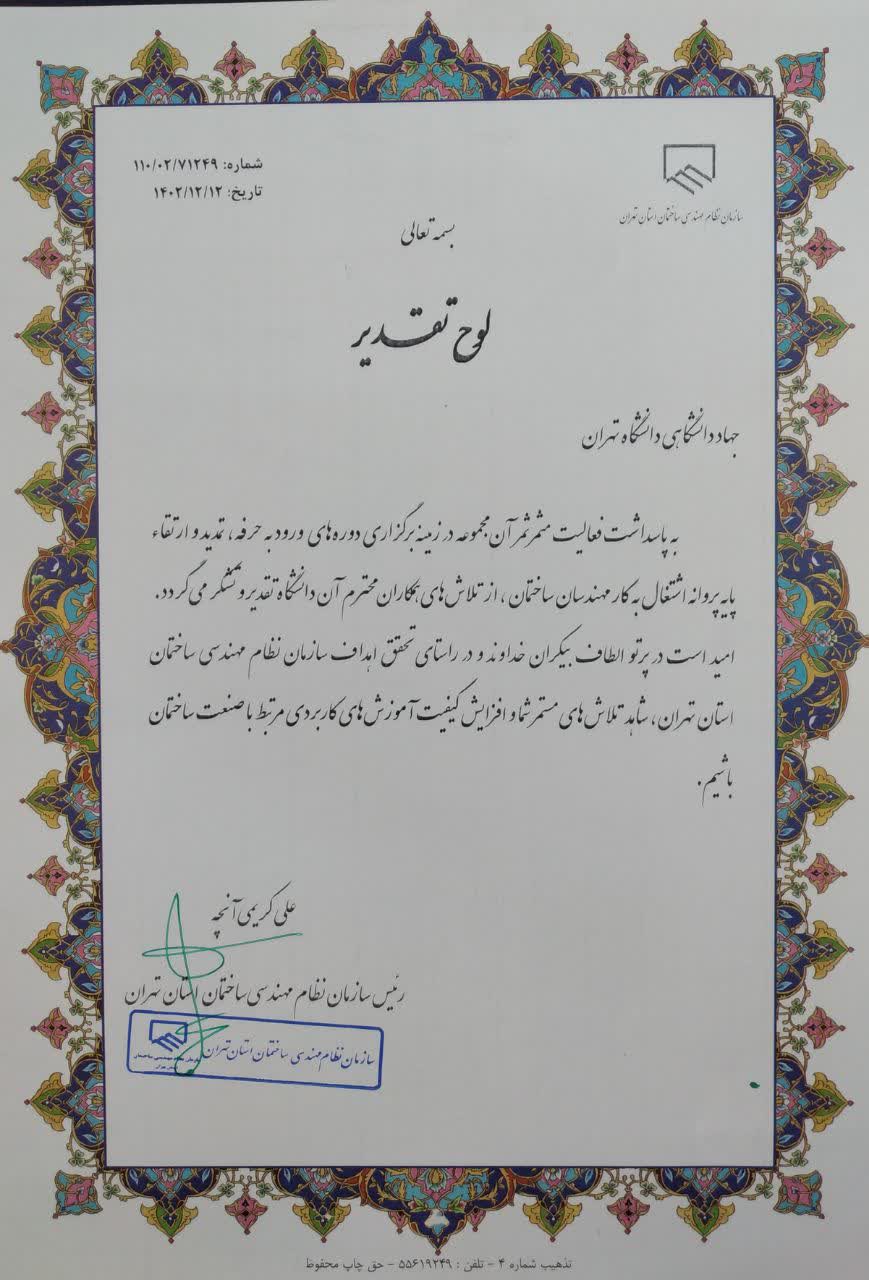 سازمان نظام مهندسی ساختمان استان تهران
شماره: ۱۱۰/۰۲/۷۱۲۴۹
تاریخ: ۱۴۰۲/۱۲/۱۲
بسمه تعالی
لوح تقدیر
جهاد دانشگاهی دانشگاه تهران
به پاسداشت فعالیت مثمرثمر آن مجموعه در زمینه برگزاری دوره های ورود به حرفه، تمدید و ارتقاء
پایه پروانه اشتغال به کار مهندسان ساختمان، از تلاش های همکاران محترم آن دانشگاه تقدیر و تشکر می گردد.
امید است در پرتو الطاف بیکران خداوند و در راستای تحقق اهداف سازمان نظام مهندسی ساختمان
استان تهران، شاهد تلاش های مستمر شما و افزایش کیفیت آموزش های کاربردی مرتبط با صنعت ساختمان
باشیم.
علی کریمی آنچه
رئیس سازمان نظام مهندسی ساختمان استان تهران
سازمان نظام مهندسی ساختمان استان تهران
تذهیب شماره ۴ - تلفن : ۵۵۶۱۹۲۴۹ - حق چاپ محفوظ